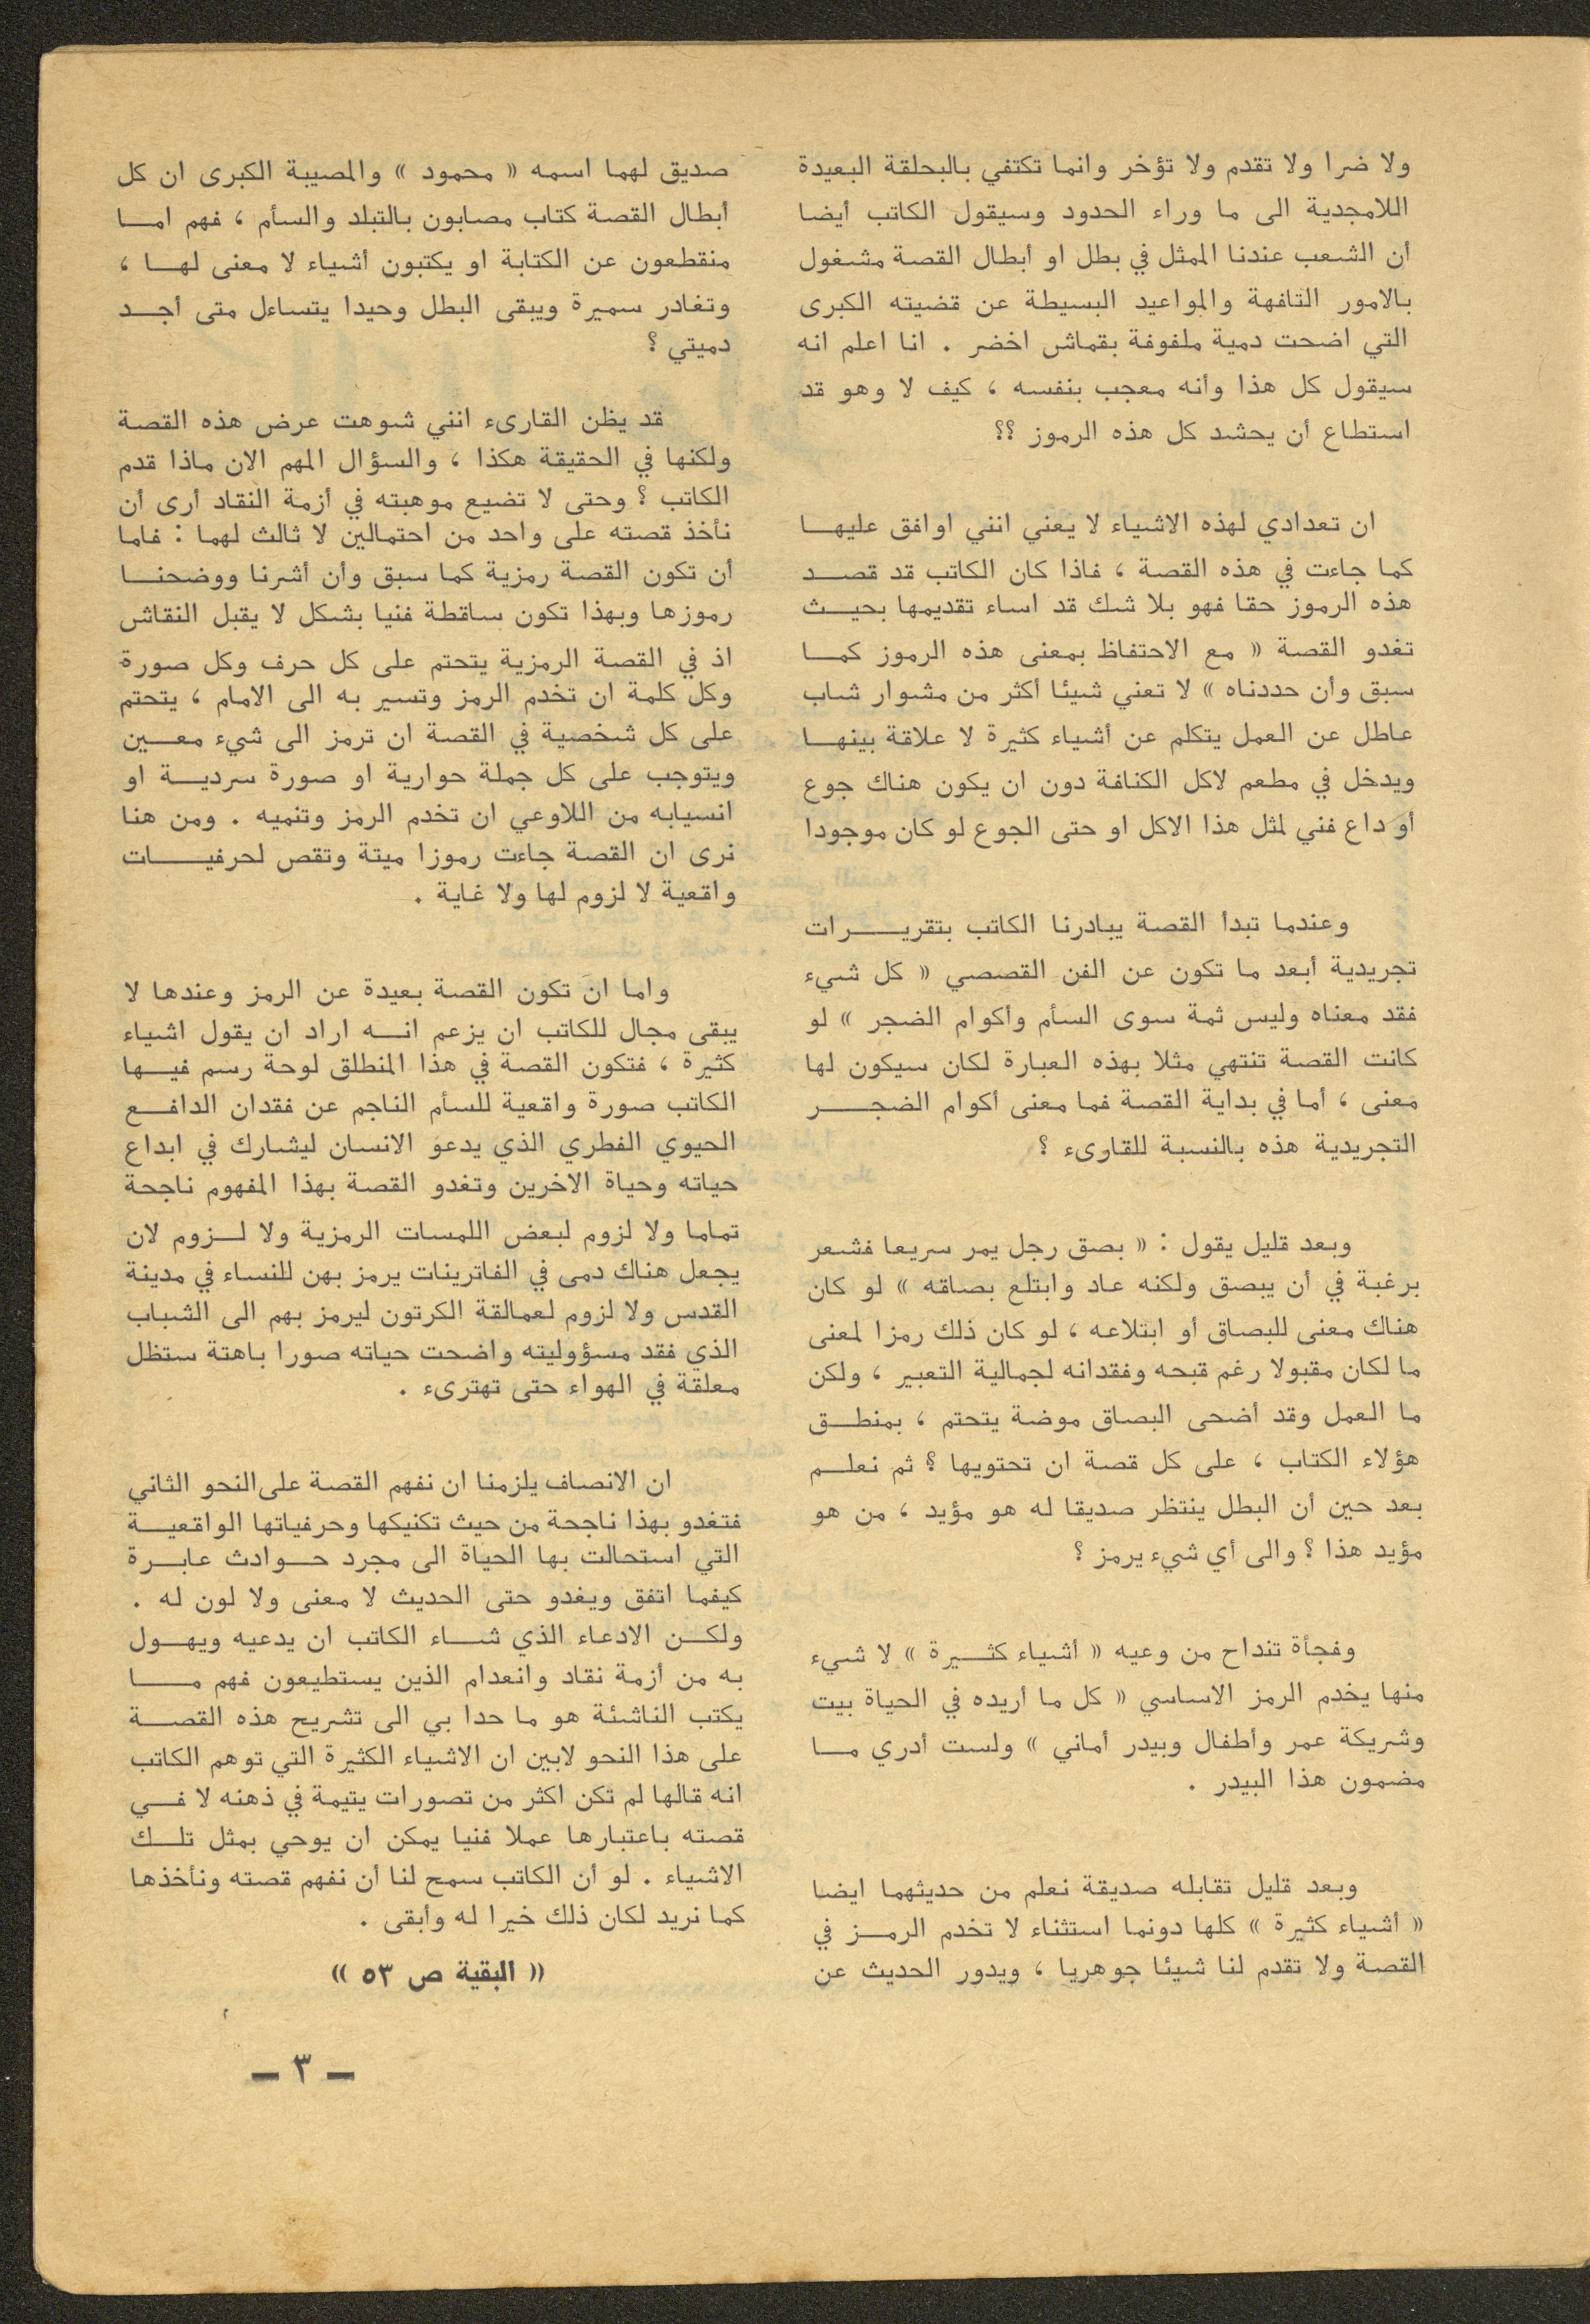 ولا ضرا ولا تقدم ولا تؤخر وانما تكتفي بالبحلقة البعيدة
اللامجدية الى ما وراء الحدود وسيقول الكاتب أيضا
أن الشعب عندنا الممثل في بطل او أبطال القصة مشغول
بالامور التافهة والمواعيد البسيطة عن قضيته الكبرى
التي اضحت دمية ملفوفة بقماش اخضر . انا اعلم انه
سيقول كل هذا وأنه معجب بنفسه ، كيف لا وهو قد
استطاع أن يحشد كل هذه الرموز ؟؟
ان تعدادي لهذه الاشياء لا يعني انني اوافق عليهــا
كما جاءت في هذه القصة ، فاذا كان الكاتب قد قصــد
هذه الرموز حقا فهو بلا شك قد اساء تقديمها بحيــث
تغدو القصة « مع الاحتفاظ بمعنى هذه الرموز كمــا
سبق وأن حددناه » لا تعني شيئا أكثر من مشوار شاب
عاطل عن العمل يتكلم عن أشياء كثيرة لا علاقة بينهــا
ويدخل في مطعم لاكل الكنافة دون ان يكون هناك جوع
أو داع فني لمثل هذا الاكل او حتى الجوع لو كان موجودا
وعندما تبدأ القصة يبادرنا الكاتب بتقريــــرات
تجريدية أبعد ما تكون عن الفن القصصي « كل شيء
فقد معناه وليس ثمة سوى السأم وأكوام الضجر » لو
كانت القصة تنتهي مثلا بهذه العبارة لكان سيكون لها
معنى ، أما في بداية القصة فما معنى أكوام الضجــــر
التجريدية هذه بالنسبة للقارىء ؟
وبعد قليل يقول : « بصق رجل يمر سريعا فشعر
برغبة في أن يبصق ولكنه عاد وابتلع بصاقه » لو كان
هناك معنى للبصاق أو ابتلاعه ، لو كان ذلك رمزا لمعنى
ما لكان مقبولا رغم قبحه وفقدانه لجمالية التعبير ، ولكن
ما العمل وقد أضحى البصاق موضة يتحتم ، بمنطــق
هؤلاء الكتاب ، على كل قصة ان تحتويها ؟ ثم نعلــم
بعد حين أن البطل ينتظر صديقا له هو مؤيد ، من هو
مؤيد هذا ؟ والى أي شيء يرمز ؟
وفجأة تنداح من وعيه « أشياء كثــيرة » لا شيء
منها يخدم الرمز الاساسي « كل ما أريده في الحياة بيت
وشريكة عمر وأطفال وبيدر أماني » ولست أدري مــا
مضمون هذا البيدر .
وبعد قليل تقابله صديقة نعلم من حديثهما ايضا
« أشياء كثيرة » كلها دونما استثناء لا تخدم الرمــز في
القصة ولا تقدم لنا شيئا جوهريا ، ويدور الحديث عن
صديق لهما اسمه « محمود » والمصيبة الكبرى ان كل
أبطال القصة كتاب مصابون بالتبلد والسأم ، فهم امــا
منقطعون عن الكتابة او يكتبون أشياء لا معنى لهــا ،
وتغادر سميرة ويبقى البطل وحيدا يتساءل متى أجــد
دميتي ؟
قد يظن القارىء انني شوهت عرض هذه القصة
ولكنها في الحقيقة هكذا ، والسؤال المهم الان ماذا قدم
الكاتب ؟ وحتى لا تضيع موهبته في أزمة النقاد أرى أن
نأخذ قصته على واحد من احتمالين لا ثالث لهما : فاما
أن تكون القصة رمزية كما سبق وأن أشرنا ووضحنــا
رموزها وبهذا تكون ساقطة فنيا بشكل لا يقبل النقاش
اذ في القصة الرمزية يتحتم على كل حرف وكل صورة
وكل كلمة ان تخدم الرمز وتسير به الى الامام ، يتحتم
على كل شخصية في القصة ان ترمز الى شيء معــين
ويتوجب على كل جملة حوارية او صورة سرديــة او
انسيابه من اللاوعي ان تخدم الرمز وتنميه . ومن هنا
نرى ان القصة جاءت رموزا ميتة وتقص لحرفيــــات
واقعية لا لزوم لها ولا غاية .
واما ان تكون القصة بعيدة عن الرمز وعندها لا
يبقى مجال للكاتب ان يزعم انــه اراد ان يقول اشياء
كثيرة ، فتكون القصة في هذا المنطلق لوحة رسم فيــها
الكاتب صورة واقعية للسأم الناجم عن فقدان الدافــع
الحيوي الفطري الذي يدعو الانسان ليشارك في ابداع
حياته وحياة الاخرين وتغدو القصة بهذا المفهوم ناجحة
تماما ولا لزوم لبعض اللمسات الرمزية ولا لــزوم لان
يجعل هناك دمى في الفاترينات يرمز بهن للنساء في مدينة
القدس ولا لزوم لعمالقة الكرتون ليرمز بهم الى الشباب
الذي فقد مسؤوليته واضحت حياته صورا باهتة ستظل
معلقة في الهواء حتى تهترىء .
ان الانصاف يلزمنا ان نفهم القصة على النحو الثاني
فتغدو بهذا ناجحة من حيث تكنيكها وحرفياتها الواقعيــة
التي استحالت بها الحياة الى مجرد حــوادث عابــرة
كيفما اتفق ويغدو حتى الحديث لا معنى ولا لون له .
ولكــن الادعاء الذي شــاء الكاتب ان يدعيه ويهــول
به من أزمة نقاد وانعدام الذين يستطيعون فهم مـــا
يكتب الناشئة هو ما حدا بي الى تشريح هذه القصــة
على هذا النحو لابين ان الاشياء الكثيرة التي توهم الكاتب
انه قالها لم تكن اكثر من تصورات يتيمة في ذهنه لا فــي
قصته باعتبارها عملا فنيا يمكن ان يوحي بمثل تلــك
الاشياء . لو أن الكاتب سمح لنا أن نفهم قصته ونأخذها
كما نريد لكان ذلك خيرا له وأبقى .
« البقية ص ٥٣ »
— ٣ —